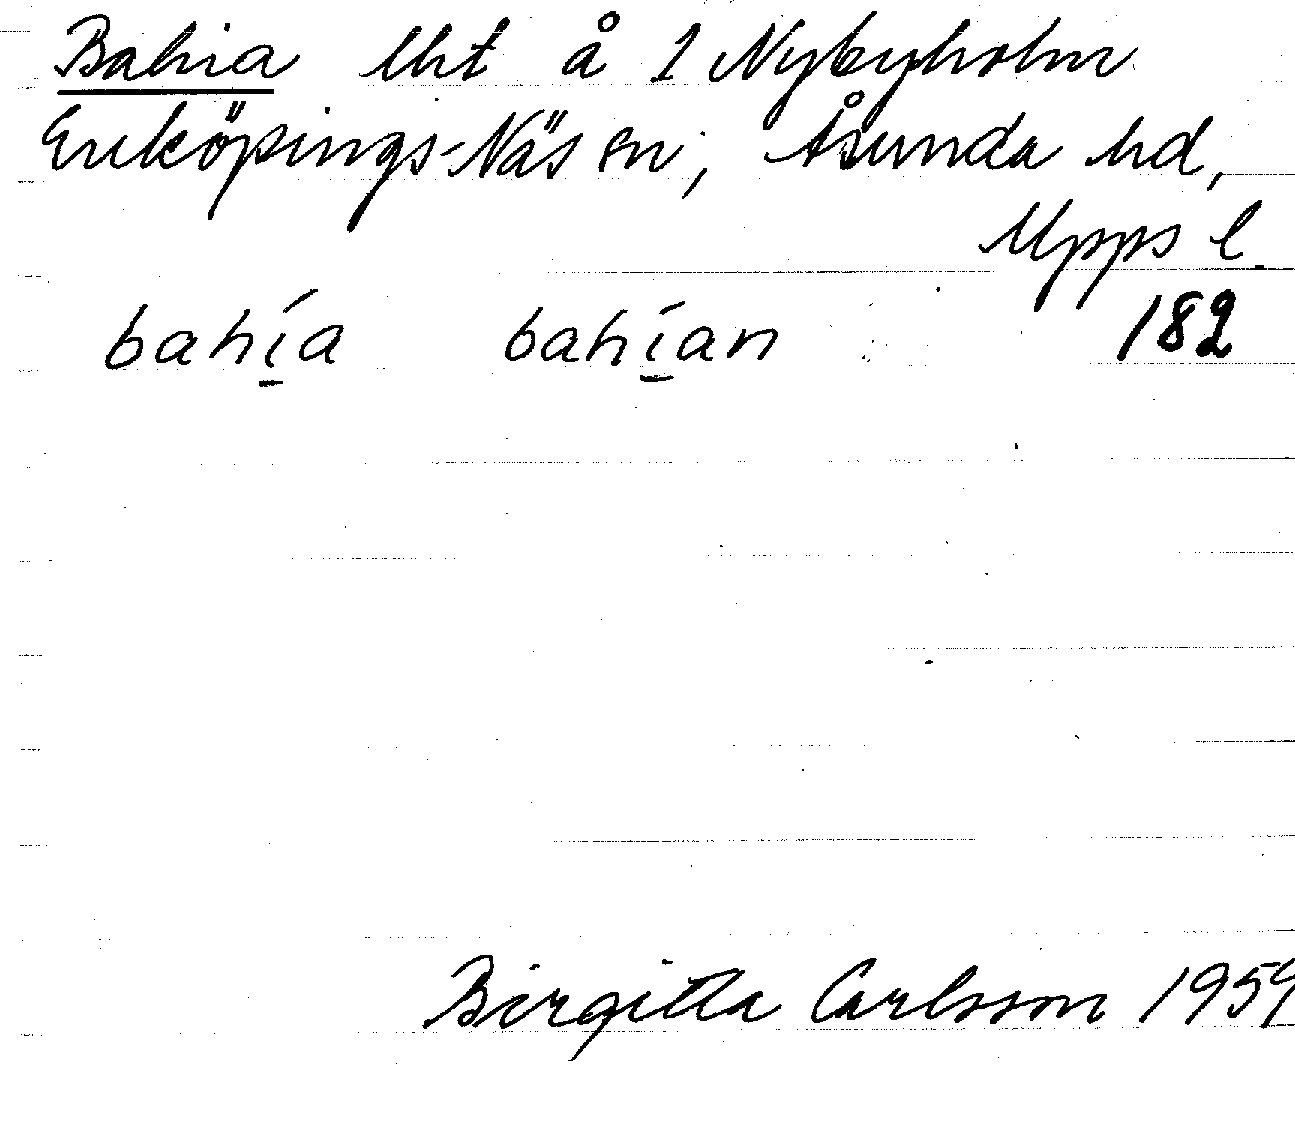 Bahia lht å 1 Nybyholm
Enköpings-Näs sn, Åsunda hd,
Upps l.
bahí̲a bahí̲an 182
Birgitta Carlsson 1959